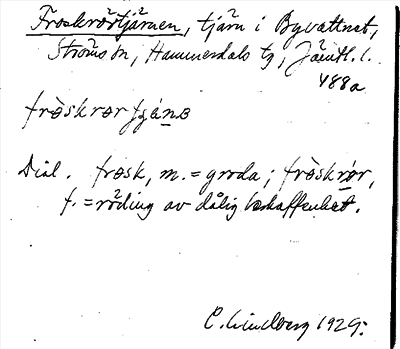 Froskrörtjärnen, tjärn i Byvattnet,
Ströms sn, Hammerdals tg, Jämtl. l.
488a
fròskrør
Dial. frosk, m. = groda; fròskrør,
f. = röding av dålig beskaffenhet.
C. Lindberg 1929.